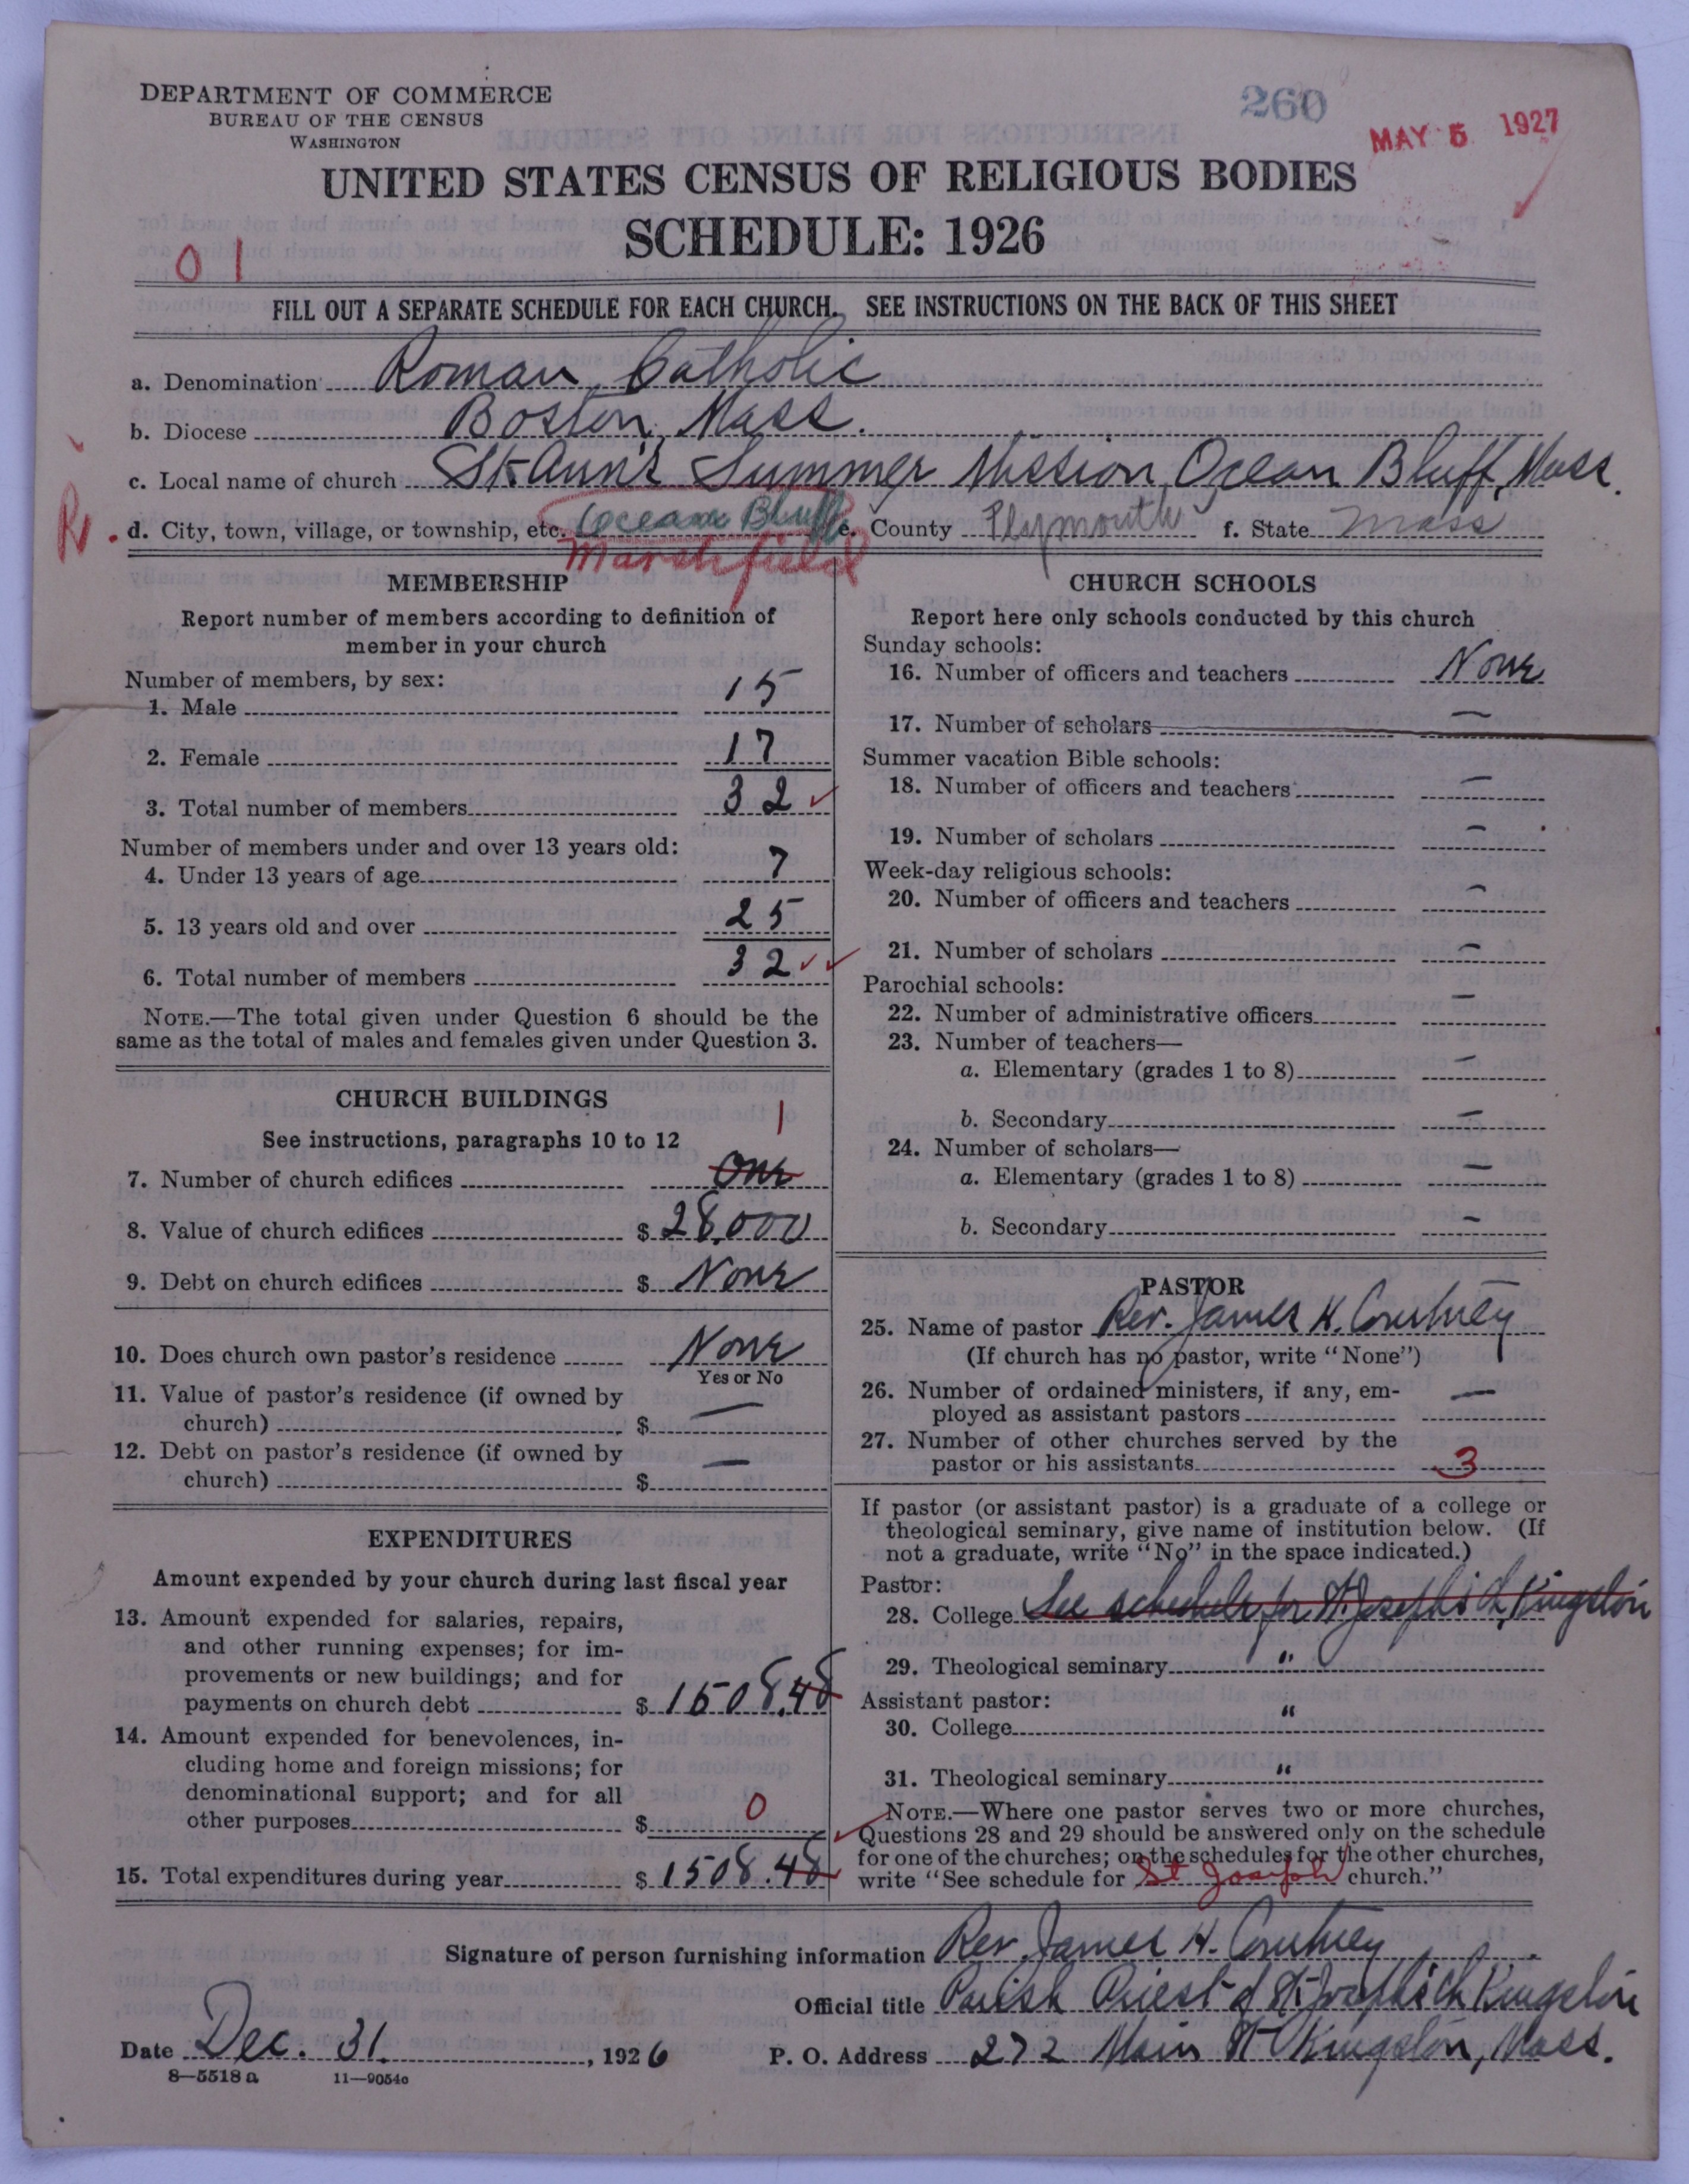 DEPARTMENT OF COMMERCE
BUREAU OF THE CENSUS
WASHINGTON
260
MAY 5 1927
UNITED STATES CENSUS OF RELIGIOUS BODIES
SCHEDULE: 1926
01
FILL OUT A SEPARATE SCHEDULE FOR EACH CHURCH. SEE INSTRUCTIONS ON THE BACK OF THIS SHEET
a. Denomination Roman Catholic
b. Diocese Boston, Mass.
c. Local name of church St Ann's Summer Mission, Ocean Bluff, Mass.
d. City, town, village, or township, etc. Ocean Bluff e. County Plymouth f. State Mass
Marshfield
MEMBERSHIP
Report number of members according to definition of
member in your church
Number of members, by sex:
1. Male 15
2. Female 17
3. Total number of members 32
Number of members under and over 13 years old:
4. Under 13 years of age 7
5. 13 years old and over 25
6. Total number of members 32
NOTE.—The total given under Question 6 should be the
same as the total of males and females given under Question 3.
CHURCH BUILDINGS
See instructions, paragraphs 10 to 12
1
7. Number of church edifices One
8. Value of church edifices $ 28,000
9. Debt on church edifices $ None
10. Does church own pastor's residence None
Yes or No
11. Value of pastor's residence (if owned by
church) $ —
12. Debt on pastor's residence (if owned by
church) $ —
EXPENDITURES
Amount expended by your church during last fiscal year
13. Amount expended for salaries, repairs,
and other running expenses; for im-
provements or new buildings; and for
payments on church debt $ 1508.48
14. Amount expended for benevolences, in-
cluding home and foreign missions; for
denominational support; and for all
other purposes $ 0
15. Total expenditures during year $ 1508.48
CHURCH SCHOOLS
Report here only schools conducted by this church
Sunday schools:
16. Number of officers and teachers None
17. Number of scholars —
Summer vacation Bible schools:
18. Number of officers and teachers —
19. Number of scholars —
Week-day religious schools:
20. Number of officers and teachers —
21. Number of scholars —
Parochial schools:
22. Number of administrative officers —
23. Number of teachers—
a. Elementary (grades 1 to 8) —
b. Secondary —
24. Number of scholars—
a. Elementary (grades 1 to 8) —
b. Secondary —
PASTOR
25. Name of pastor Rev. James H. Courtney
(If church has no pastor, write "None")
26. Number of ordained ministers, if any, em-
ployed as assistant pastors —
27. Number of other churches served by the
pastor or his assistants 3
If pastor (or assistant pastor) is a graduate of a college or
theological seminary, give name of institution below. (If
not a graduate, write "No" in the space indicated.)
Pastor:
28. College See schedule for St. Joseph's Ch Kingston
29. Theological seminary "
Assistant pastor:
30. College "
31. Theological seminary "
NOTE.—Where one pastor serves two or more churches,
Questions 28 and 29 should be answered only on the schedule
for one of the churches; on the schedules for the other churches,
write "See schedule for St Joseph church."
Signature of person furnishing information Rev. James H. Courtney
Official title Parish Priest of St. Joseph's Ch Kingston
Date Dec. 31, 1926 P. O. Address 272 Main St Kingston, Mass.
8—5518 a 11—9054c